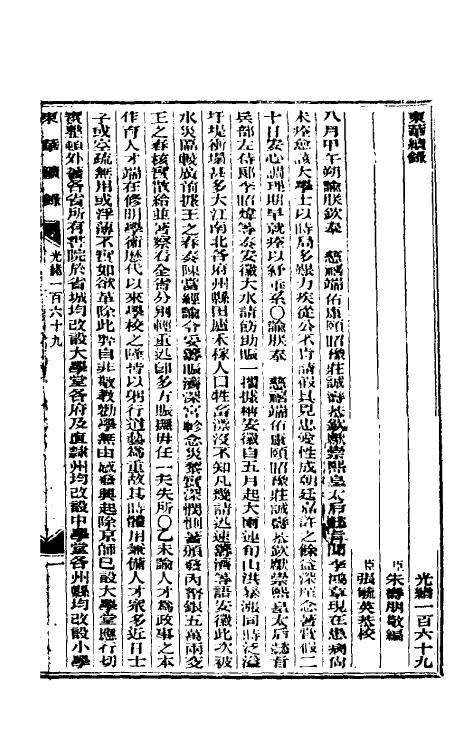 東華續錄
光緒一百六十九
臣朱壽朋敬編
臣張毓英恭校
八月甲午朔諭朕欽奉　慈禧端佑康頤昭豫莊誠壽恭欽獻崇熙皇太后懿旨聞李鴻章現在患病尚
未痊愈該大學士以時局多艱力疾從公不肯請假具見忠愛性成朝廷嘉許之餘益深廑念著賞假二
十日安心調理期早就痊以紓重系〇諭朕奉　慈禧端佑康頤昭豫莊誠壽恭欽獻崇熙皇太后懿旨
兵部左侍郎李昭煒等奏安徽大水請飭助賑一摺據稱安徽自五月起大雨連旬山洪暴漲同時泛溢
圩堤衝塌甚多大江南北各府州縣田廬禾稼人口牲畜漂沒不知凡幾請迅速籌濟等語安徽此次被
水災區較廣前據王之春奏陳當經諭令妥籌賑濟深宮軫念災黎實深憫惻著頒發內帑銀五萬兩交
王之春核實散給並著察看全省分別輕重迅即多方賑撫毋任一夫失所〇乙未諭人才為政事之本
作育人才端在修明學術歷代以來學校之隆皆以躬行道藝為重故其時體用兼備人才衆多近日士
子或空疏無用或浮薄不實如欲革除此弊自非敬教勸學無由感發興起除京師已設大學堂應行切
實整頓外著各省所有書院於省城均改設大學堂各府及直隸州均改設中學堂各州縣均改設小學
東華續錄　光緒一百六十九　一